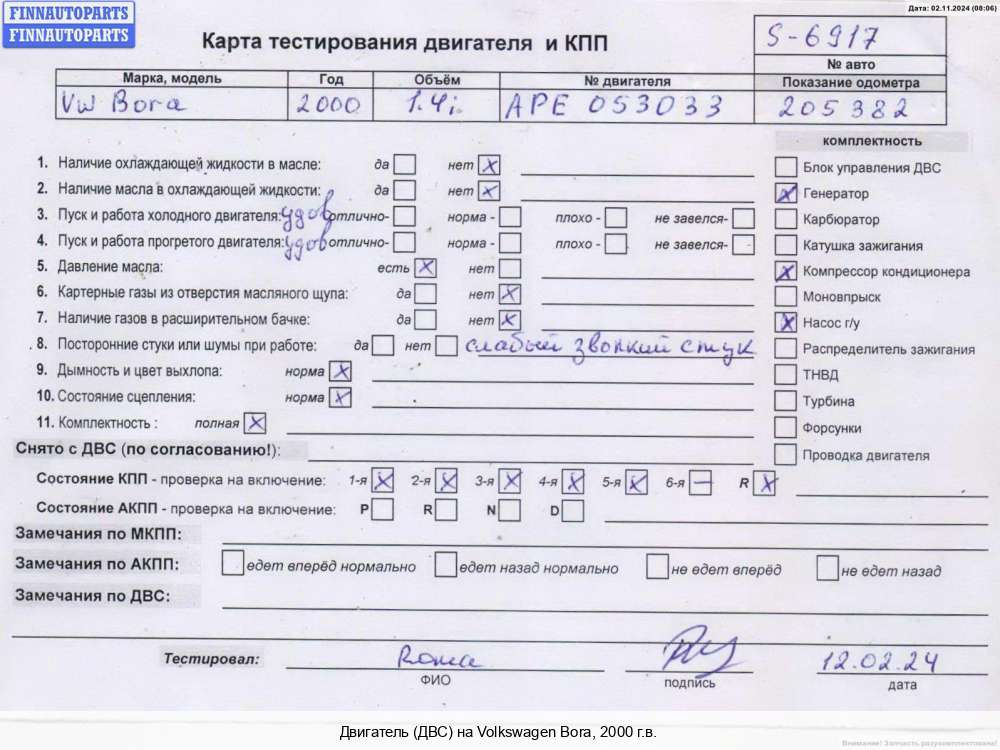 FINNAUTOPARTS
FINNAUTOPARTS
Дата: 02.11.2024 (08:06)
Карта тестирования двигателя и КПП
S-6917
№ авто
Марка, модель Год Объём № двигателя Показание одометра
VW Bora 2000 1.4i APE 053033 205382
комплектность
1. Наличие охлаждающей жидкости в масле: да нет X
Блок управления ДВС
2. Наличие масла в охлаждающей жидкости: да нет X
X Генератор
3. Пуск и работа холодного двигателя: удов отлично- норма - плохо - не завелся-
Карбюратор
4. Пуск и работа прогретого двигателя: удов отлично- норма - плохо - не завелся-
Катушка зажигания
5. Давление масла: есть X нет
X Компрессор кондиционера
6. Картерные газы из отверстия масляного щупа: да нет X
Моновпрыск
7. Наличие газов в расширительном бачке: да нет X
X Насос г/у
8. Посторонние стуки или шумы при работе: да нет слабый звонкий стук
Распределитель зажигания
9. Дымность и цвет выхлопа: норма X
ТНВД
10. Состояние сцепления: норма X
Турбина
11. Комплектность : полная X
Форсунки
Снято с ДВС (по согласованию!):
Проводка двигателя
Состояние КПП - проверка на включение: 1-я X 2-я X 3-я X 4-я X 5-я X 6-я — R X
Состояние АКПП - проверка на включение: P R N D
Замечания по МКПП:
Замечания по АКПП: едет вперёд нормально едет назад нормально не едет вперёд не едет назад
Замечания по ДВС:
Тестировал: Рома 12.02.24
ФИО подпись дата
Двигатель (ДВС) на Volkswagen Bora, 2000 г.в.
Внимание! Запчасть разукомплектована!